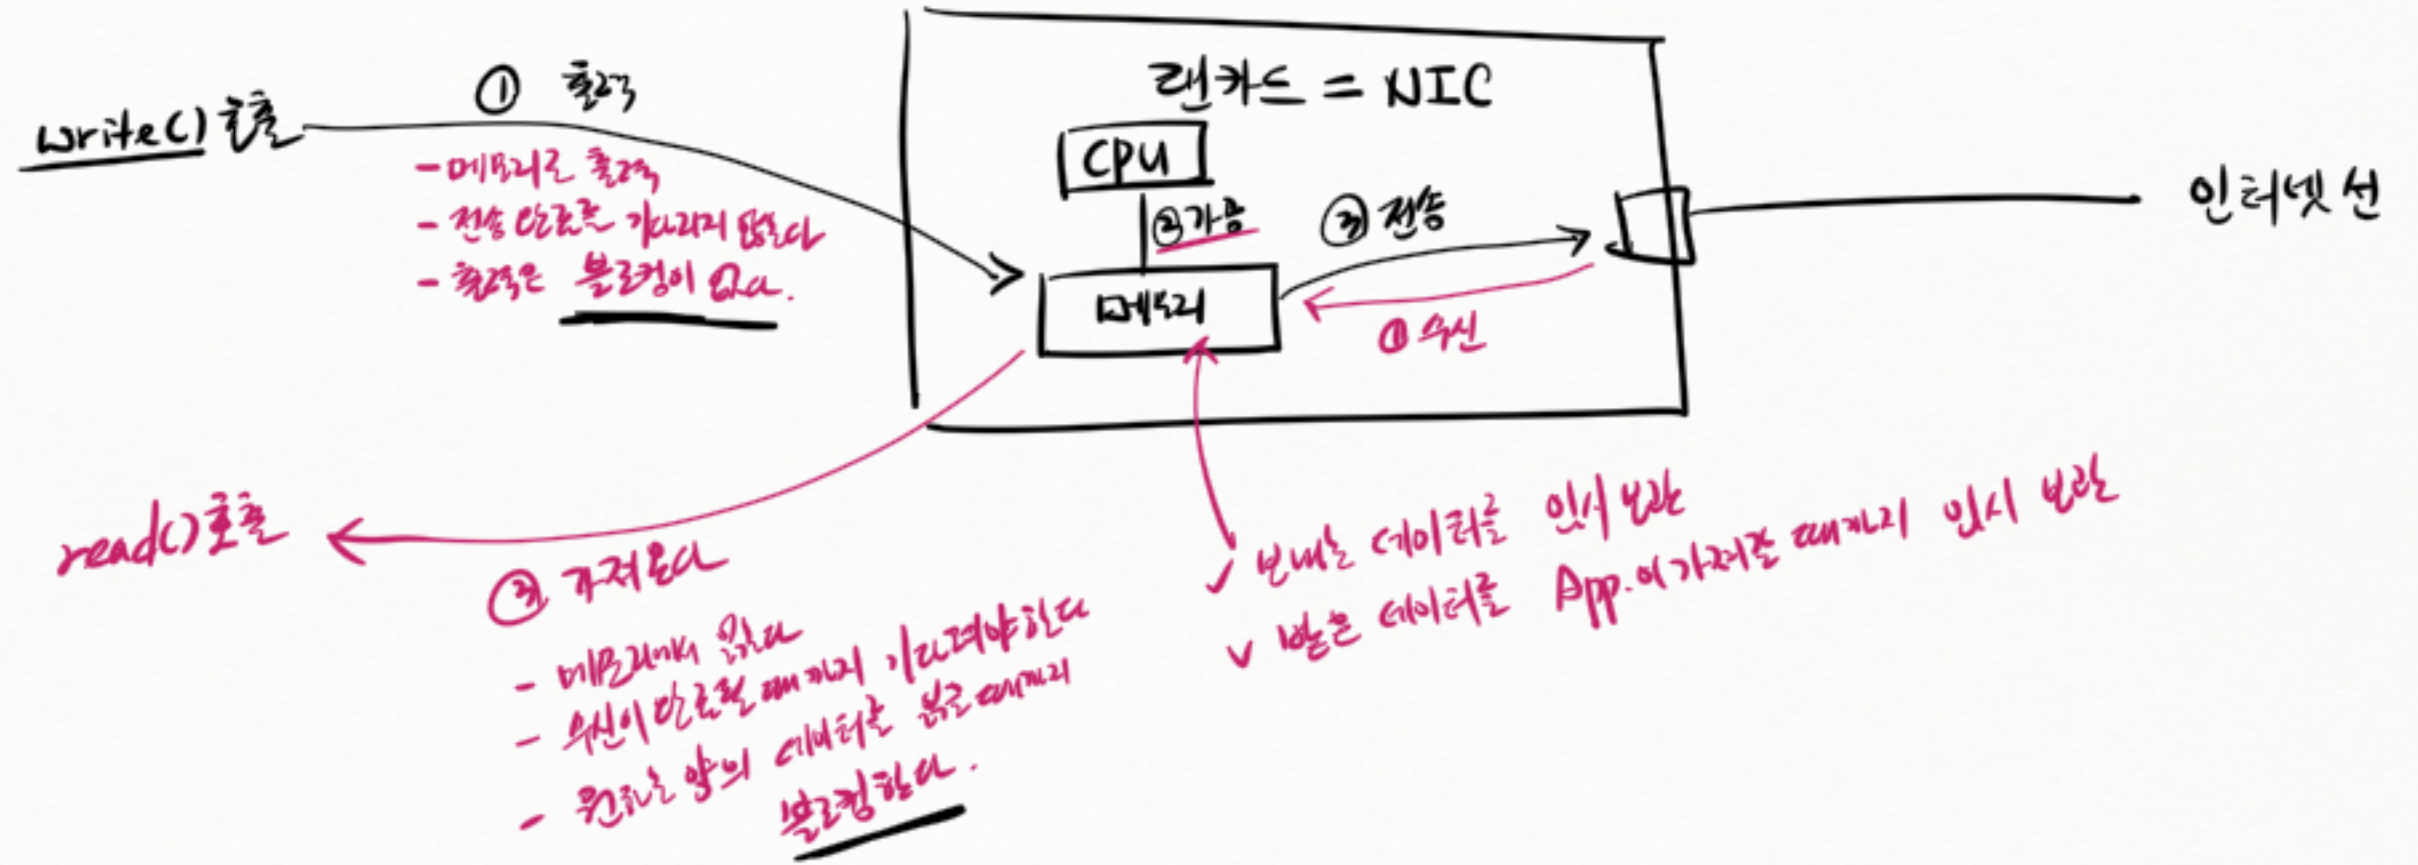 랜카드 = NIC
write() 호출
① 출력
- 메모리로 출력
- 전송 완료를 기다리지 않는다
- 출력은 블로킹이 없다.
CPU
② 가공
③ 전송
메모리
① 수신
인터넷 선
read() 호출
가져온다
- 메모리에서 읽는다
- 수신이 완료될 때까지 기다려야 한다
- 원하는 양의 데이터를 읽을 때까지
블로킹한다.
✓ 보내는 데이터를 임시 보관
✓ 받은 데이터를 App.이 가져갈 때까지 임시 보관